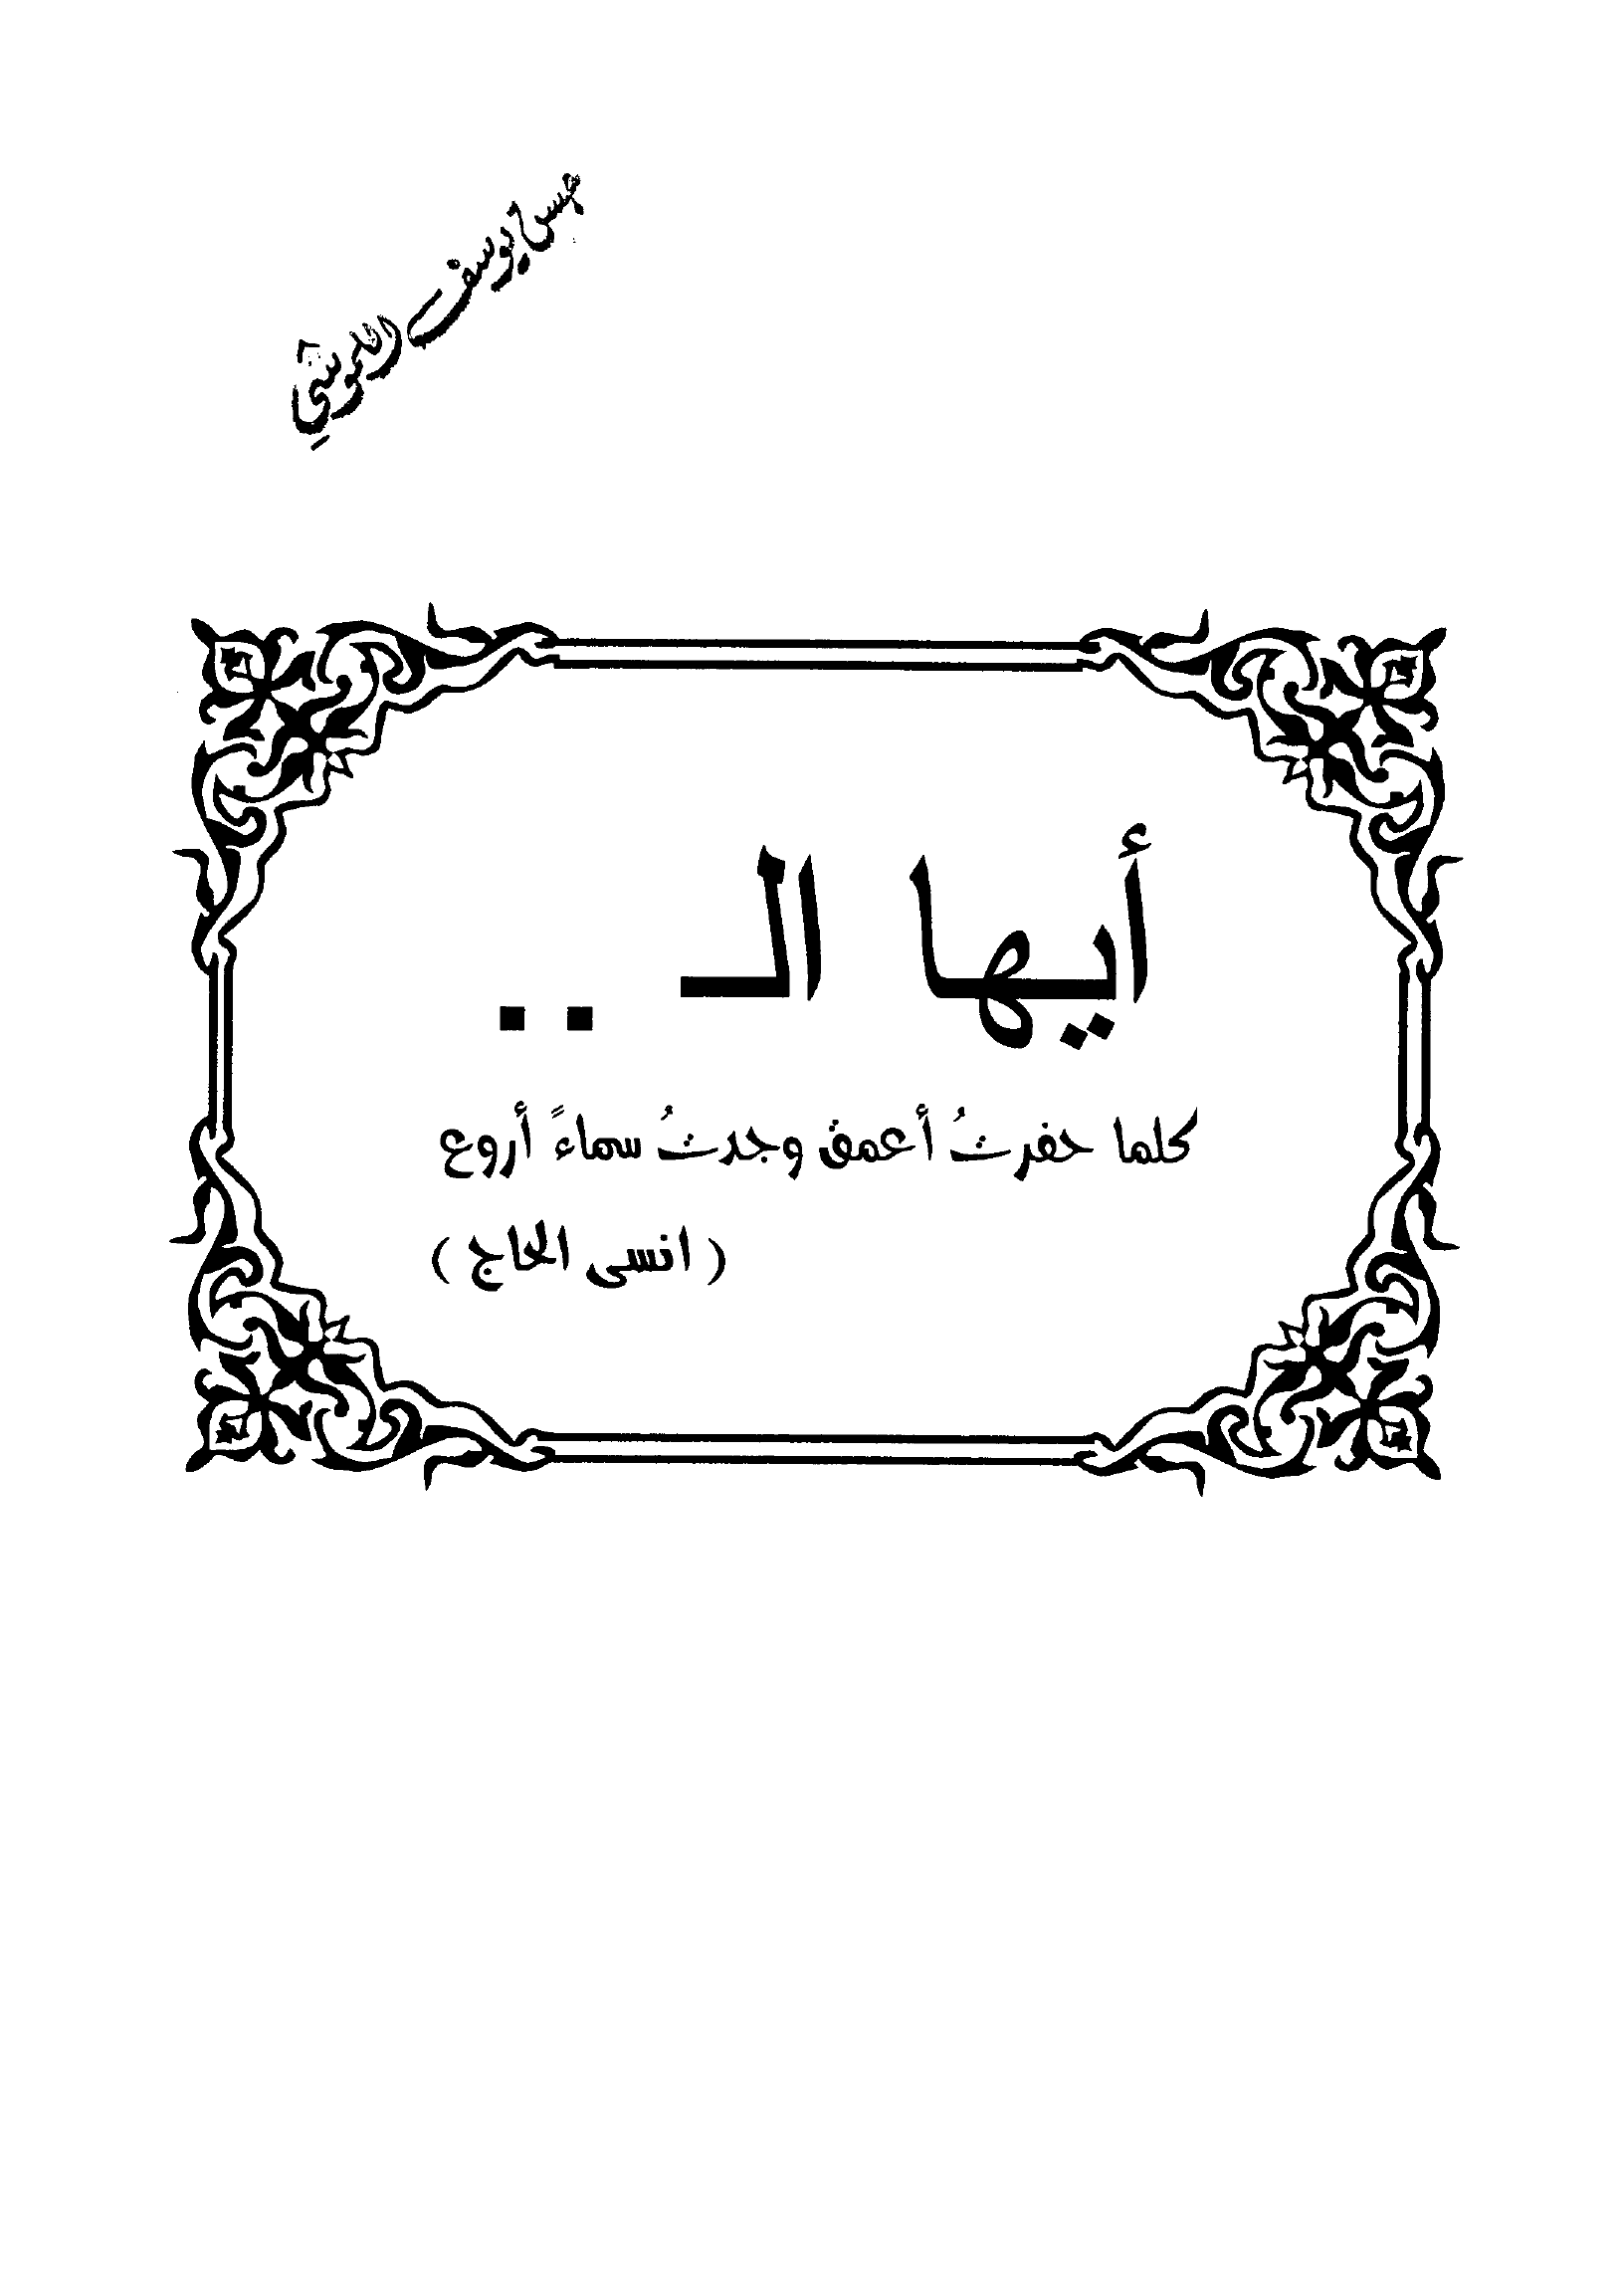 يوسف
أيها الـ ..
كلما حفرتُ أعمق وجدتُ سماءً أروع
( انسى الحاج )